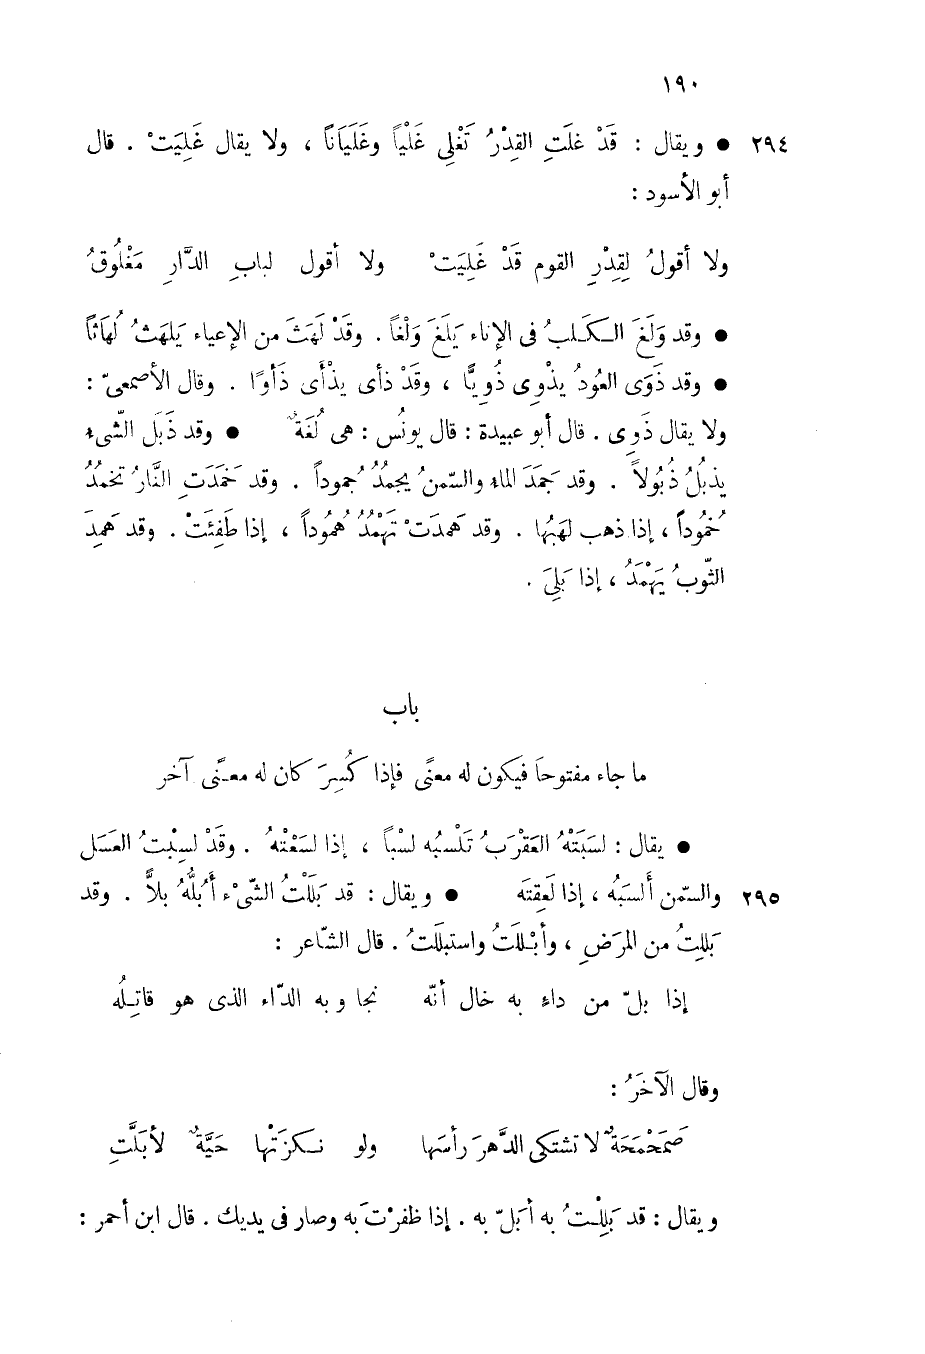 ١٩٠
٢٩٤ ● ويقال : قَدْ غلَتِ القِدْرُ تَغْلِى غَلْياً وغَلَيَاناً ، ولا يقال غَلِيَتْ . قال
أبو الأسود :
ولا أقولُ لِقِدْرِ القوم قَدْ غَلِيَتْ ولا أقول لبابِ الدَّارِ مَغْلُوقُ
● وقد وَلَغَ الكَلبُ فى الإناء يَلَغَ وَلْغاً . وقَدْ لَهَثَ من الإعياء يَلهَثُ لُهَاثاً
● وقد ذَوَى العُودُ يذْوِى ذُوِيًّا ، وقَدْ ذأى يذْأَى ذَأوًا . وقال الأصمعىّ :
ولا يقال ذَوِى . قال أبو عبيدة : قال يونُس : هى لُغَةٌ ● وقد ذَبَلَ الشّىء
يذبُلُ ذُبُولاً . وقد جَمَدَ الماء والسّمنُ يجمُدُ جُموداً . وقد خَمَدَتِ النَّارُ تخمُدُ
خُمُوداً ، إذا ذهب لهَبُها . وقد هَمدَتْ تَهْمُدُ هُمُوداً ، إذا طَفِئَتْ . وقد هَمِدَ
الثّوبُ يَهْمَدُ ، إذا بَلِىَ .
باب
ما جاء مفتوحاً فيكون له معنًى فإذا كُسِرَ كان له معنًى آخر
● يقال : لسَبَتْهُ العَقْرَبُ تَلْسبُه لسْباً ، إذا لسَعْتْهُ . وقَدْ لسِبْتُ العَسَل
٢٩٥ والسّمن أَلسَبُه ، إذا لَعِقتَه ● ويقال : قد بَلَلْتُ الشّىْء أَبُلُّهُ بلاًّ . وقد
بَلِلتُ من المرَضِ ، وأبْللَتُ واستبلَلتُ . قال الشّاعر :
إذا بلّ من داءٍ به خال أنّه نجا وبه الدّاء الذى هو قاتِلُه
وقال الآخَرُ :
صَمَحْمَحَةٌ لا تشتكى الدَّهرَ رأسَها ولو نكزَتْها حَيَّةٌ لأبَلَّتِ
ويقال : قد بَلِلْتُ به أبَلّ به . إذا ظفرْتَ به وصار فى يديك . قال ابن أحمر :